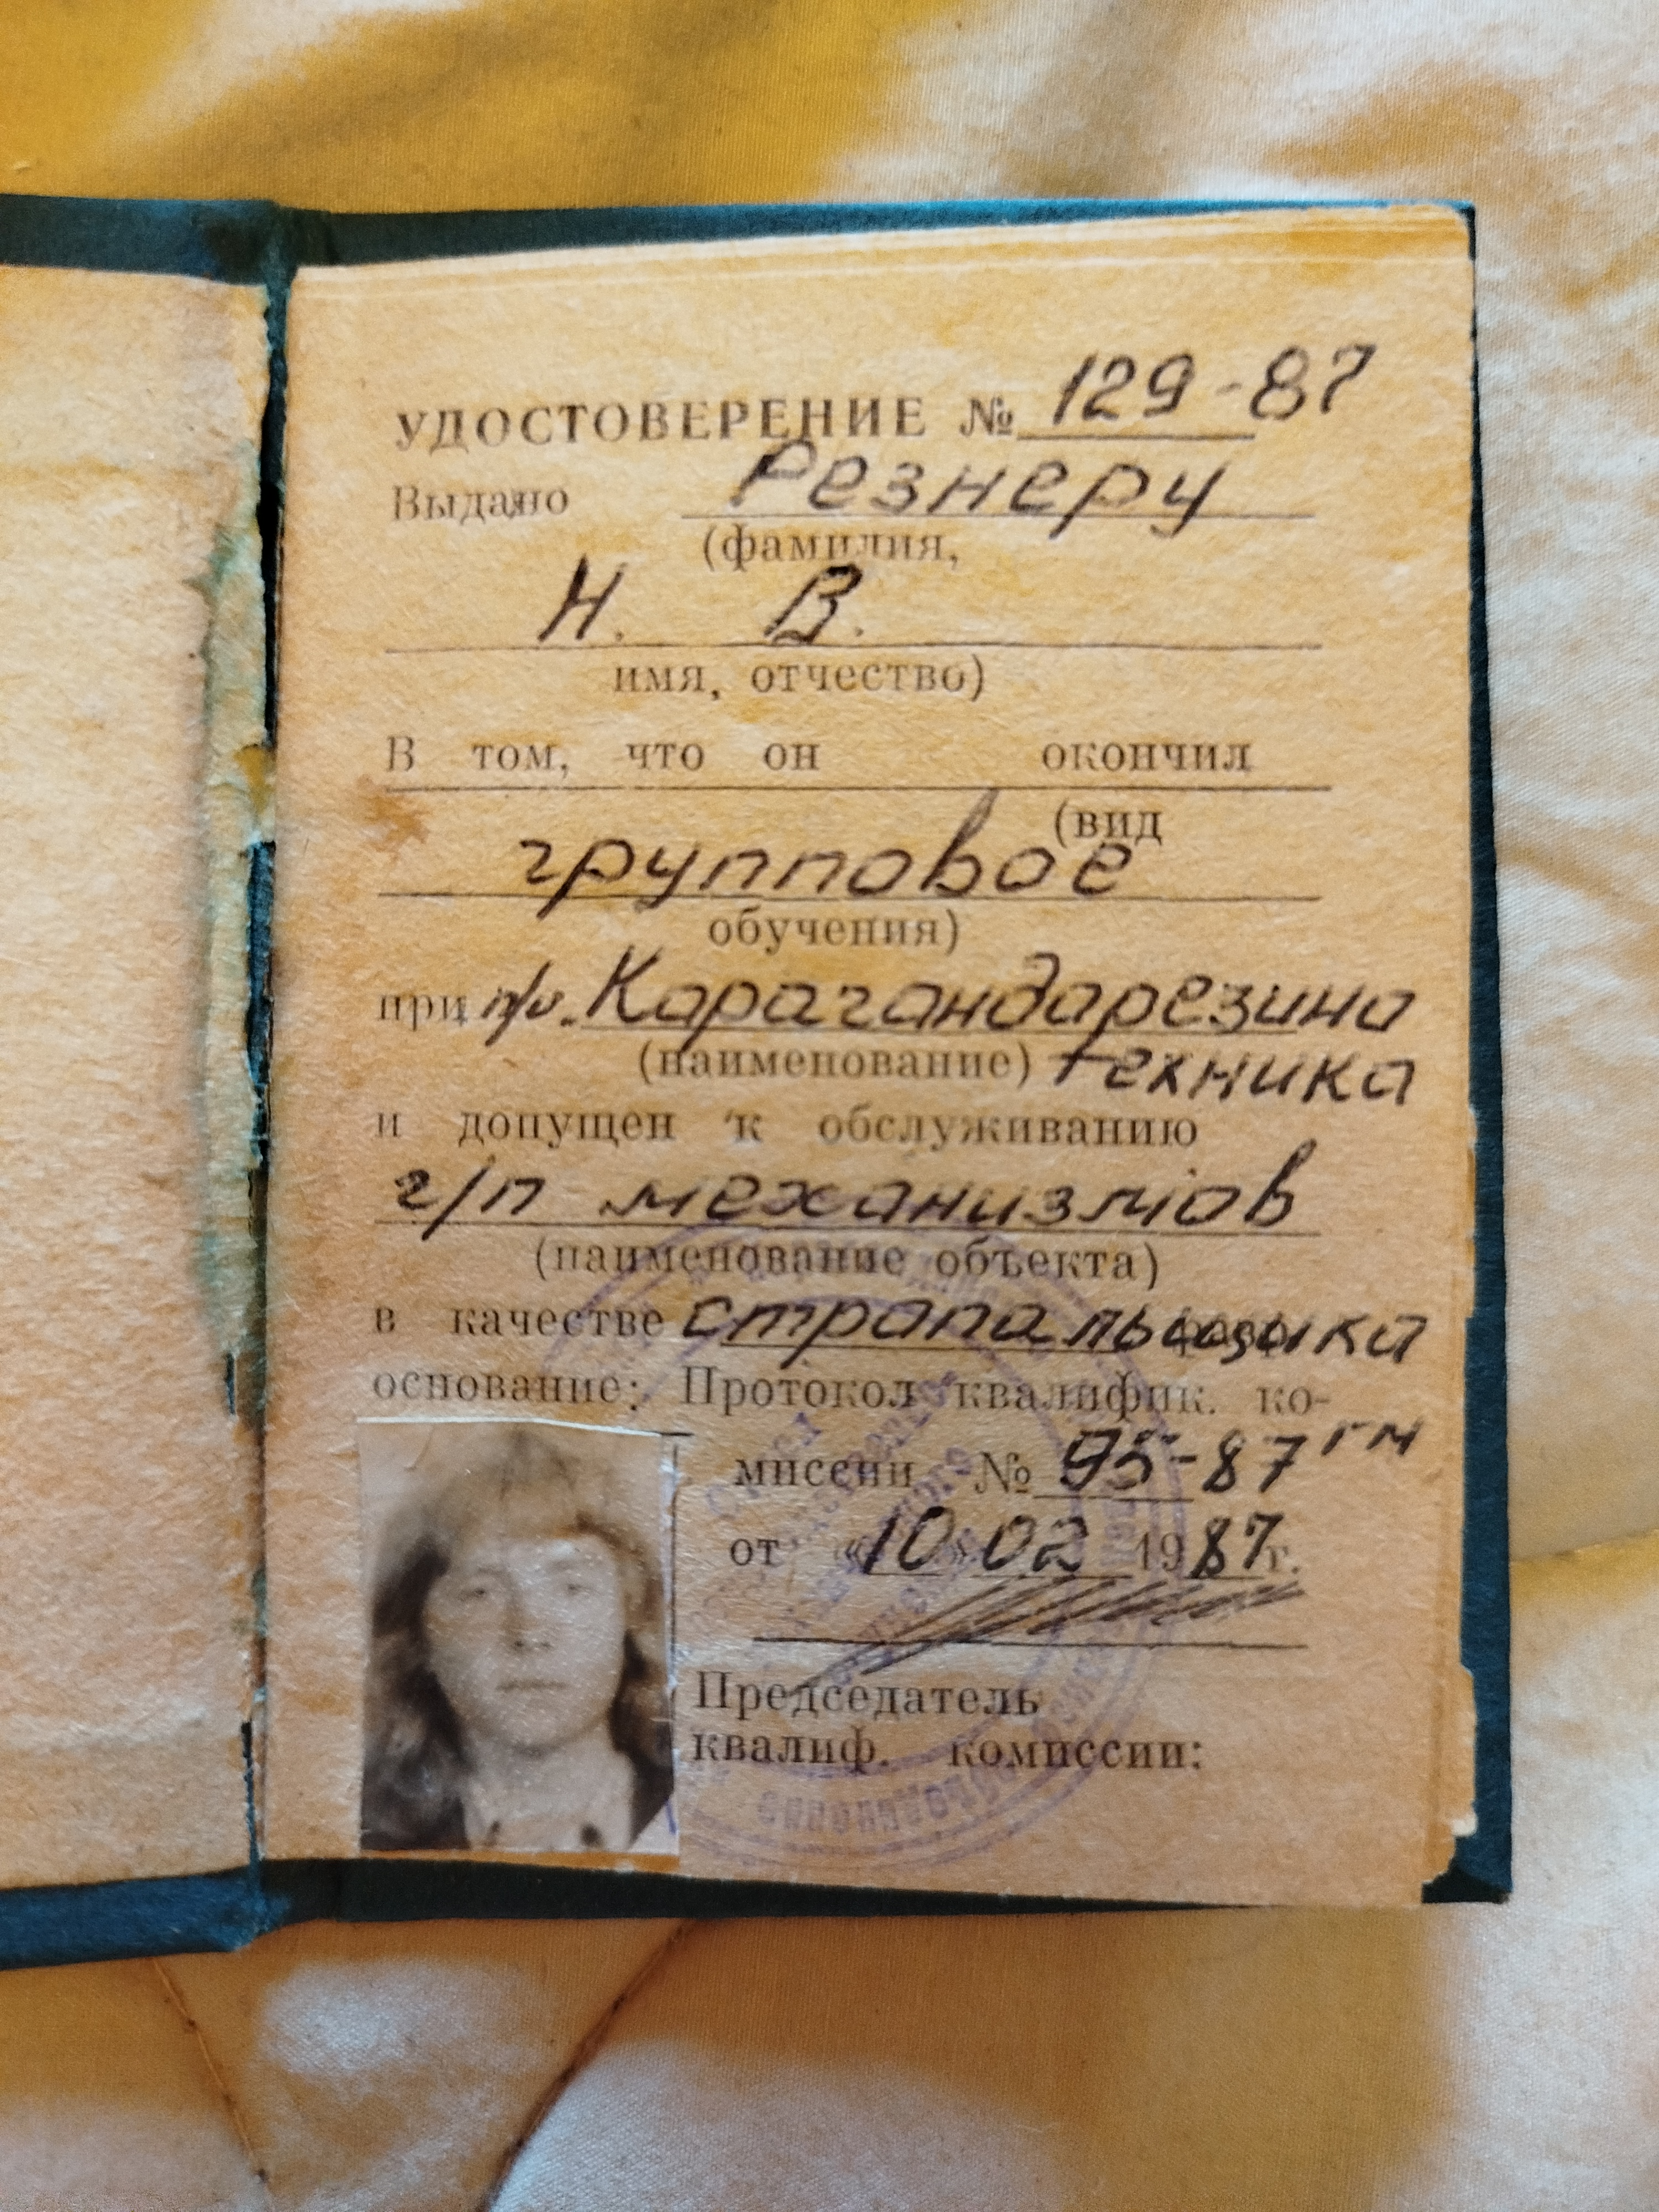 УДОСТОВЕРЕНИЕ № 129-87
Выдано Резнеру
(фамилия,
Н. В.
имя, отчество)
В том, что он окончил
(вид
групповое
обучения)
при п/о. Карагандарезино
(наименование) техника
и допущен к обслуживанию
г/п механизмов
(наименование объекта)
в качестве стропальщика
основание: Протокол квалифик. ко-
миссии № 95-87 гм
от «10» 02 1987г.
Председатель
квалиф. комиссии: